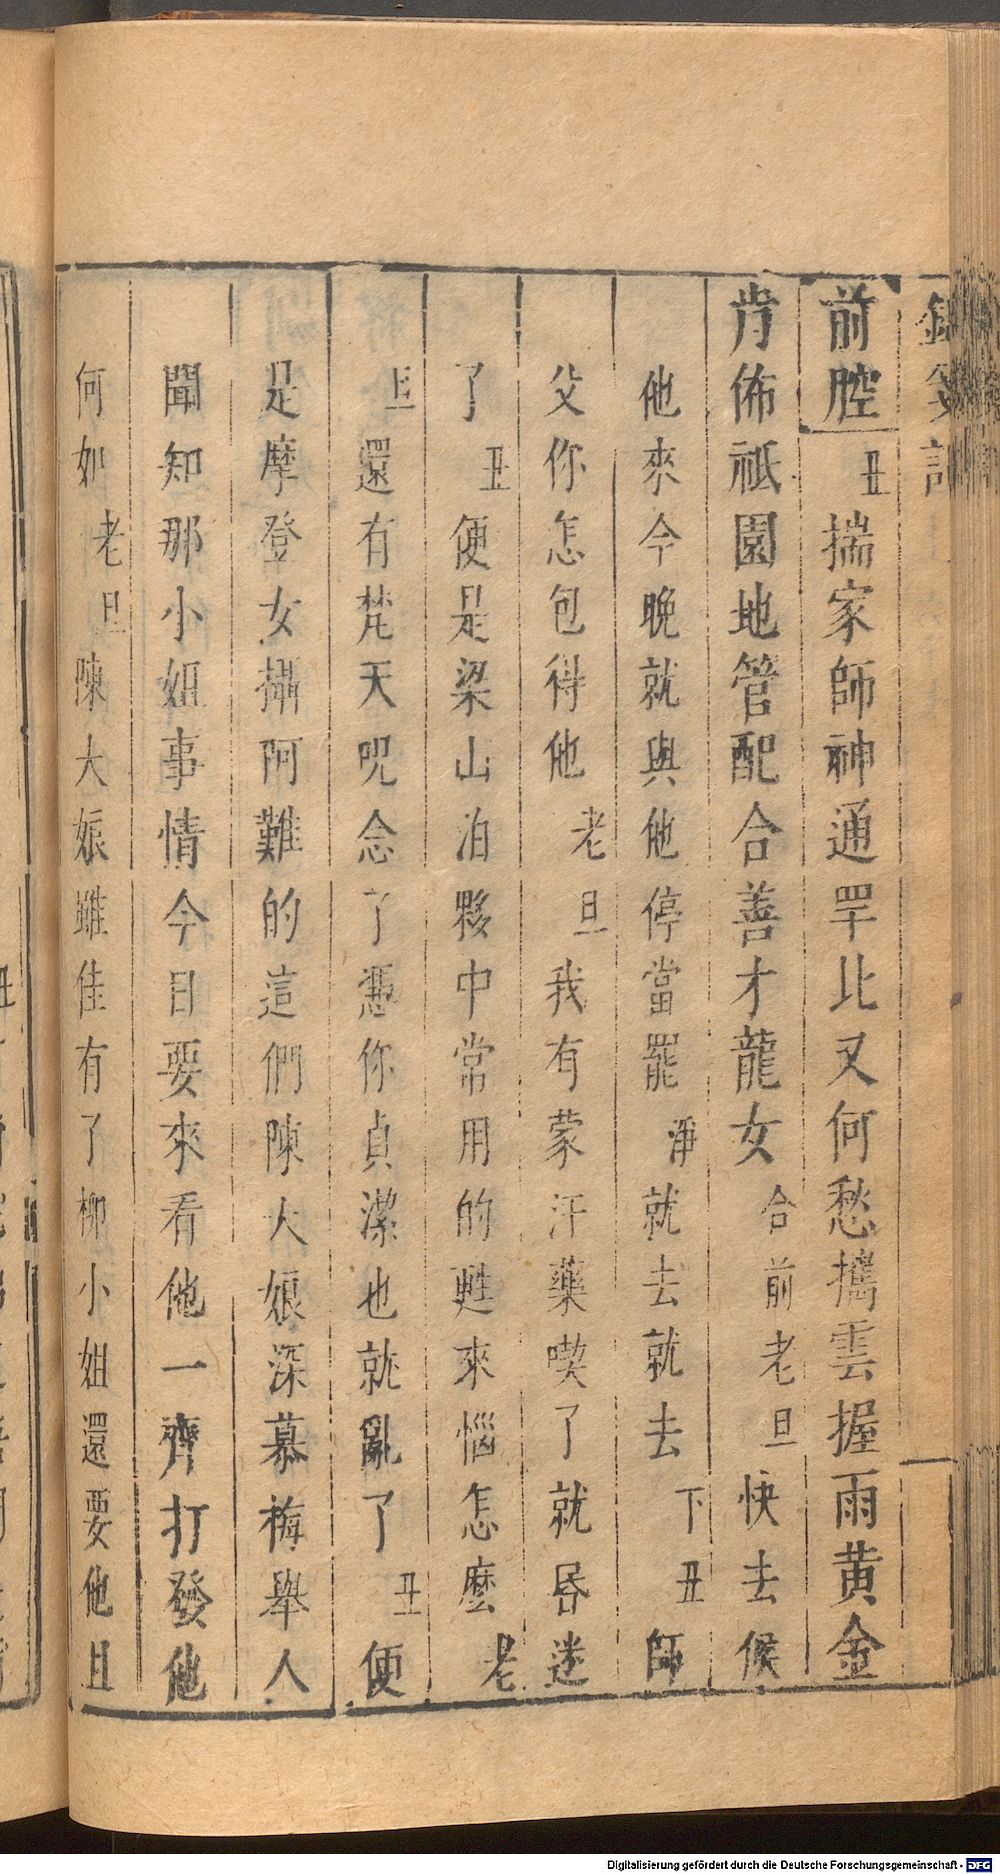 前腔丑揣家師神通罕比又何愁攜雲握雨黄金
肯佈祇園地管配合善才龍女合前老旦快去候
他來今晚就與他停當罷淨就去就去下丑師
父你怎包得他老旦我有蒙汗藥喫了就昏迷
了丑便是梁山泊夥中常用的甦來惱怎麽老
旦還有梵天呪念了憑你貞潔也就亂了丑便
是摩登女攝阿難的這們陳大娘深慕梅舉人
聞知那小姐事情今日要來看他一齊打發他
何如老旦陳大娘雖佳有了柳小姐還要他且
Digitalisierung gefördert durch die Deutsche Forschungsgemeinschaft - DFG